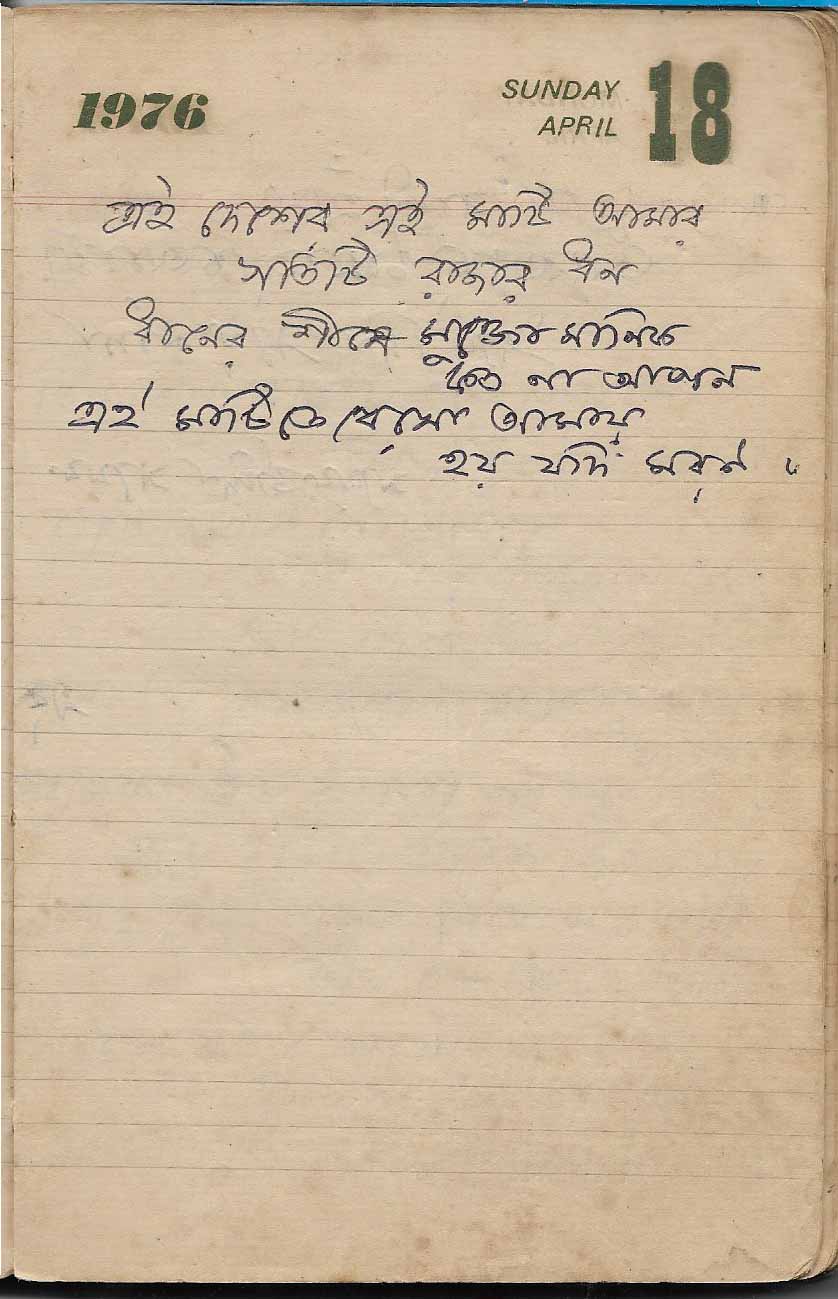 1976
SUNDAY
APRIL
18
এই দেশের এই মাটি আমার
সাতটি রাজার ধন
ধানের শীষে মুক্তো মানিক
কত না আপন
এই মাটিতে রেখো আমায়
হয় যদি মরণ ।